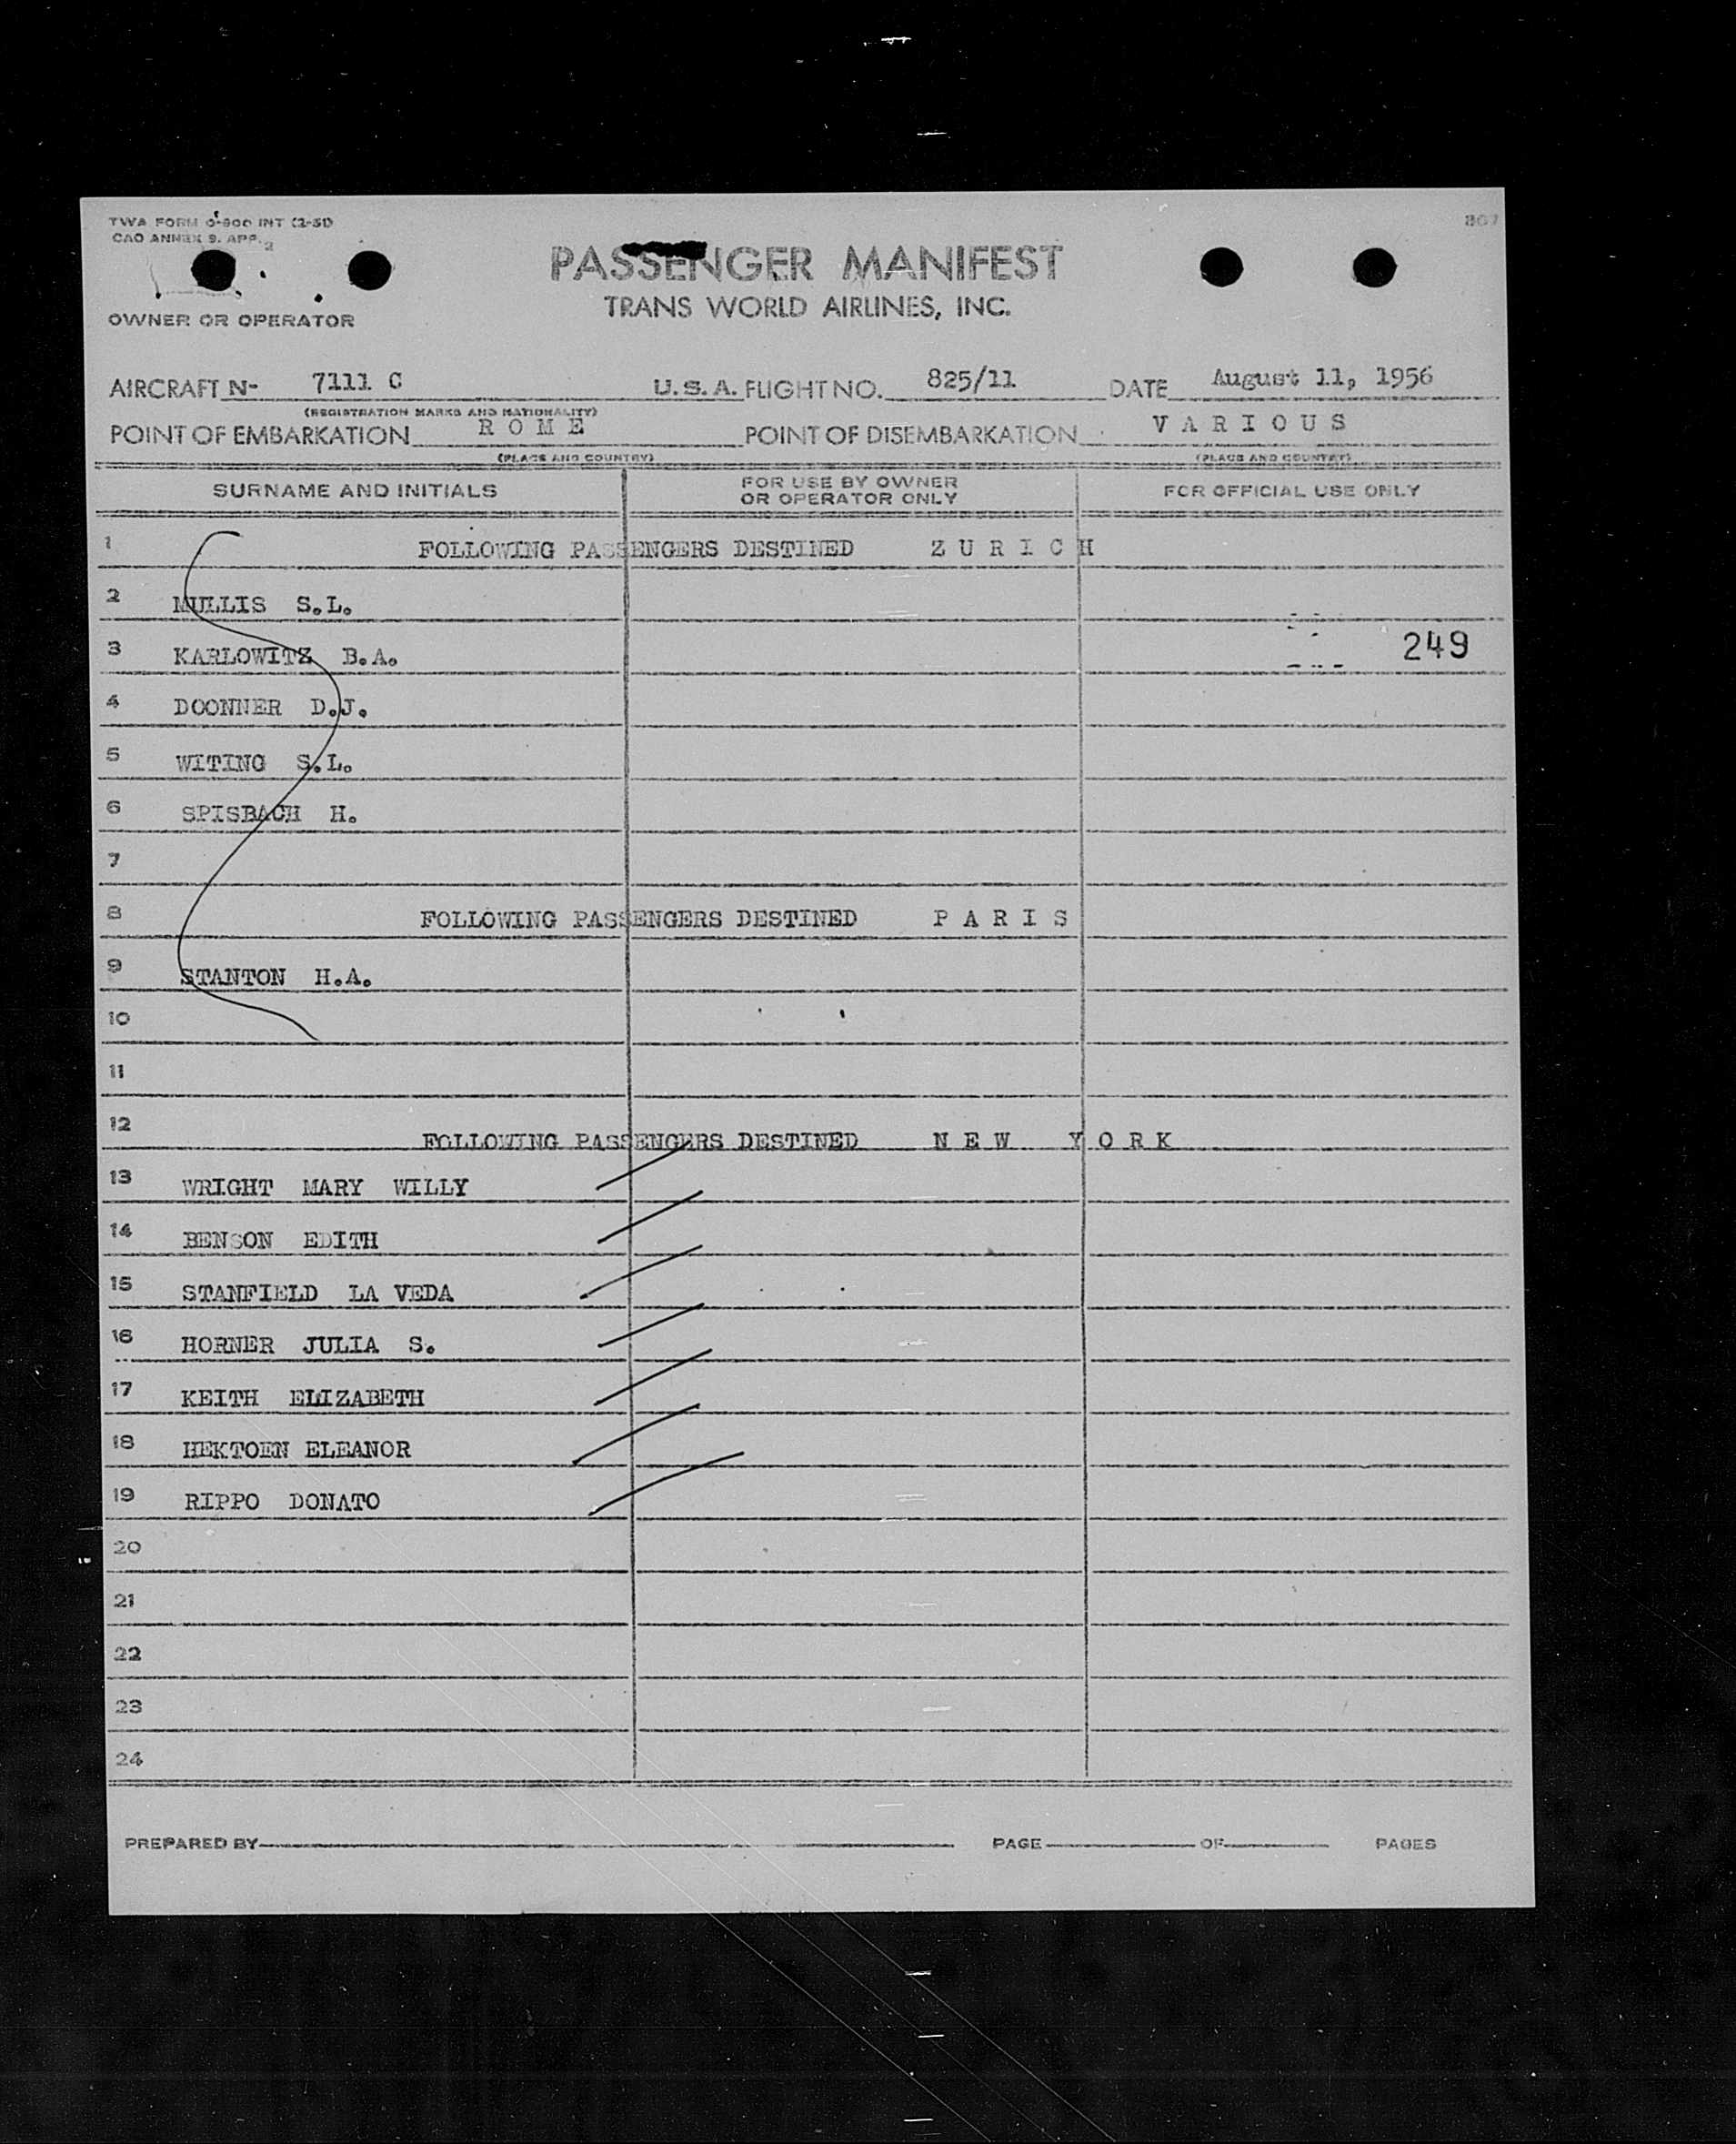 TWA FORM O-800 INT (2-51)
CAO ANNEX 9. APP. 2
307
PASSENGER MANIFEST
TRANS WORLD AIRLINES, INC.
OWNER OR OPERATOR
AIRCRAFT N- 7111 C U.S.A. FLIGHT NO. 825/11 DATE August 11, 1956
(REGISTRATION MARKS AND NATIONALITY)
POINT OF EMBARKATION R O M E POINT OF DISEMBARKATION V A R I O U S
(PLACE AND COUNTRY) (PLACE AND COUNTRY)
SURNAME AND INITIALS FOR USE BY OWNER OR OPERATOR ONLY FOR OFFICIAL USE ONLY
1 FOLLOWING PASSENGERS DESTINED Z U R I C H
2 MULLIS S.L.
3 KARLOWITZ B.A. 249
4 DOONNER D.J.
5 WITING S.L.
6 SPISBACH H.
7
8 FOLLOWING PASSENGERS DESTINED P A R I S
9 STANTON H.A.
10
11
12 FOLLOWING PASSENGERS DESTINED N E W Y O R K
13 WRIGHT MARY WILLY
14 BENSON EDITH
15 STANFIELD LA VEDA
16 HORNER JULIA S.
17 KEITH ELIZABETH
18 HEKTOEN ELEANOR
19 RIPPO DONATO
20
21
22
23
24
PREPARED BY PAGE OF PAGES